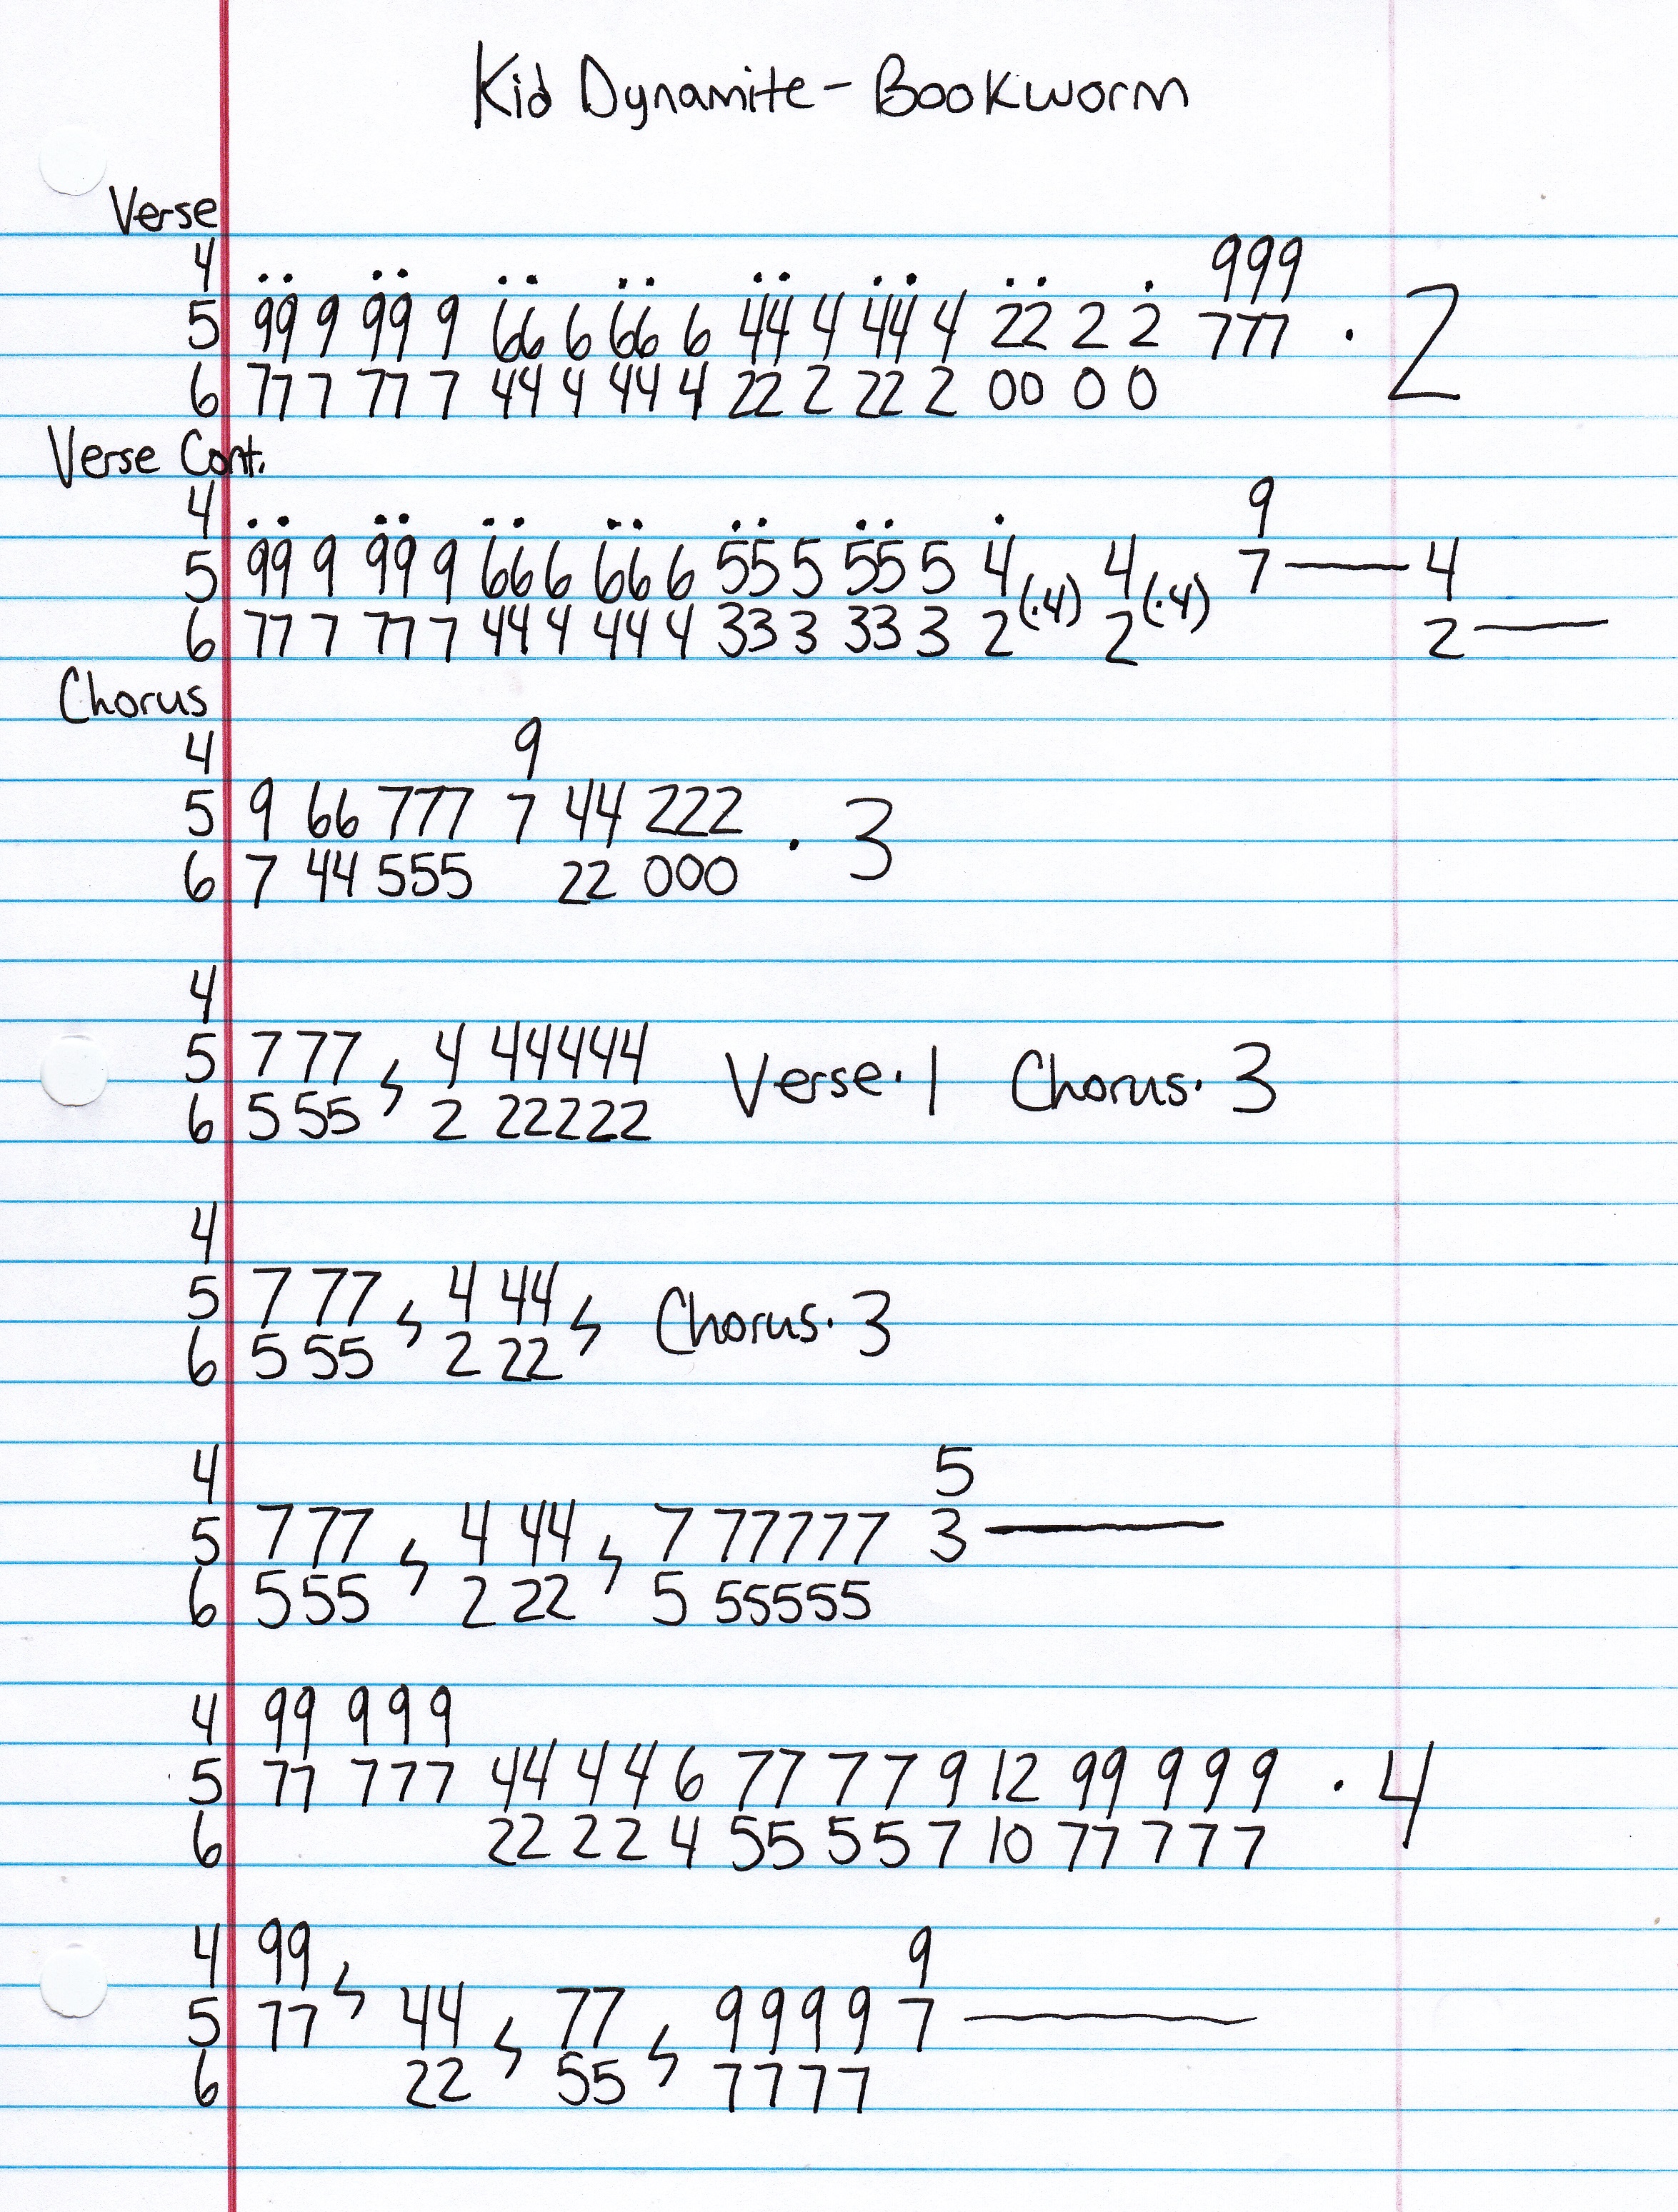 Kid Dynamite - Bookworm
Verse
4 .. .. .. .. .. .. .. . 999
5 99 9 99 9 66 6 66 6 44 4 44 4 22 2 2 777 · 2
6 77 7 77 7 44 4 44 4 22 2 22 2 00 0 0
Verse Cont.
4 .. .. .. .. .. .. . 9
5 99 9 99 9 66 6 66 6 55 5 55 5 4 (·4) 4 (·4) 7 — 4
6 77 7 77 7 44 4 44 4 33 3 33 3 2 2 2 —
Chorus
4 9
5 9 66 777 7 44 222 · 3
6 7 44 555 22 000
4
5 7 77 , 4 44444 Verse · 1 Chorus · 3
6 5 55 2 22222
4
5 7 77 , 4 44 , Chorus · 3
6 5 55 2 22
4 5
5 7 77 , 4 44 , 7 77777 3 —
6 5 55 2 22 5 55555
4 99 999
5 77 777 44 4 4 6 77 7 7 9 12 99 9 9 9 · 4
6 22 2 2 4 55 5 5 7 10 77 7 7 7
4 99 , 9
5 77 44 , 77 , 9 9 9 9 7 —
6 22 55 7 7 7 7